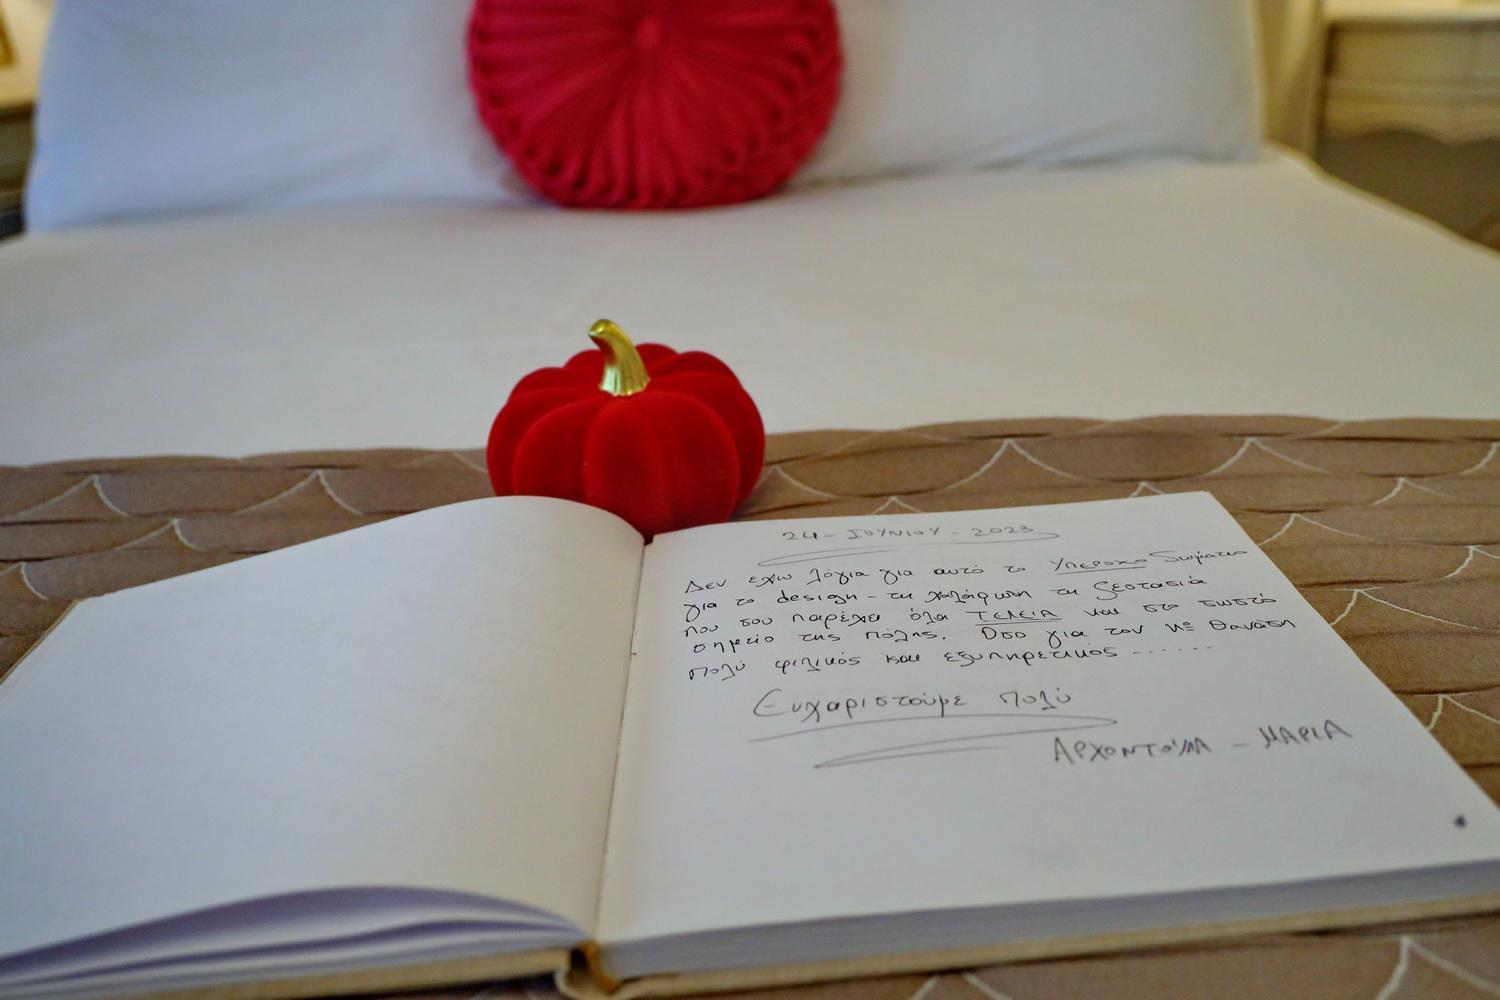 24 - ΙΟΥΝΙΟΥ - 2023
Δεν εχω λόγια για αυτό το ΥΠΕΡΟΧΟ δωμάτιο
για το design - τη χαλάρωση τη ζεστασιά
που σου παρέχει όλα ΤΕΛΕΙΑ και στο σωστό
σημείο της πόλης. Όσο για τον κο Θανάση
πολύ φιλικός και εξυπηρετικός ......
Ευχαριστούμε πολύ
ΑΡΧΟΝΤΟΥΛΑ - ΜΑΡΙΑ